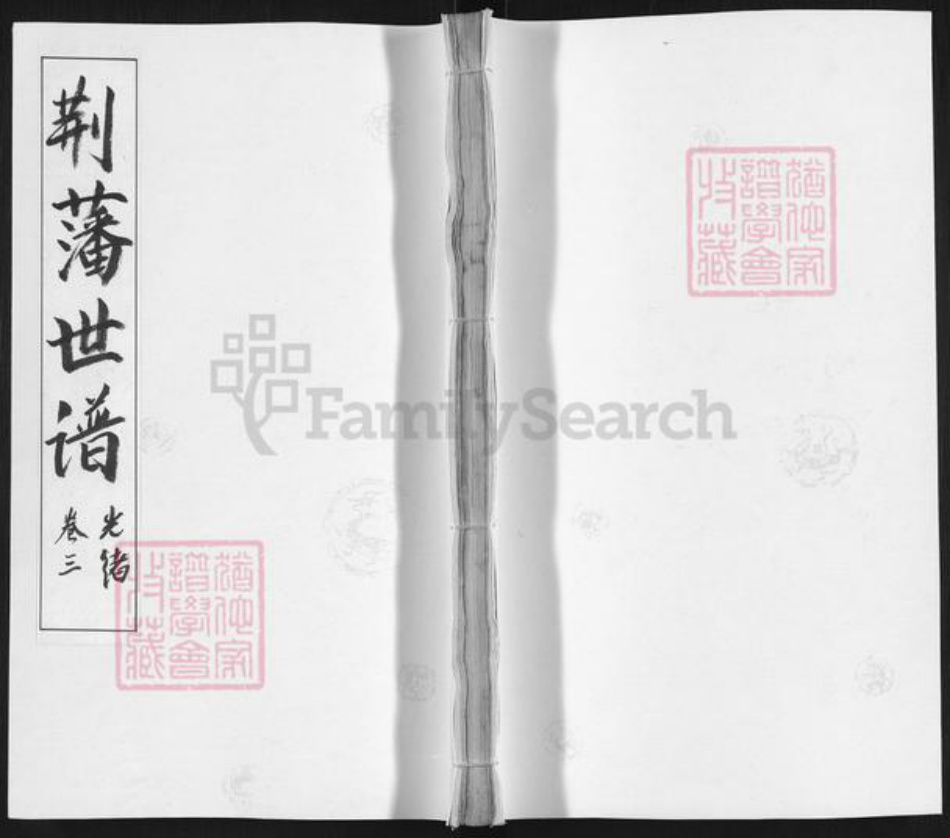 荆藩世谱
光绪
卷三
FamilySearch
猶他家
譜學會
收藏
猶他家
譜學會
收藏